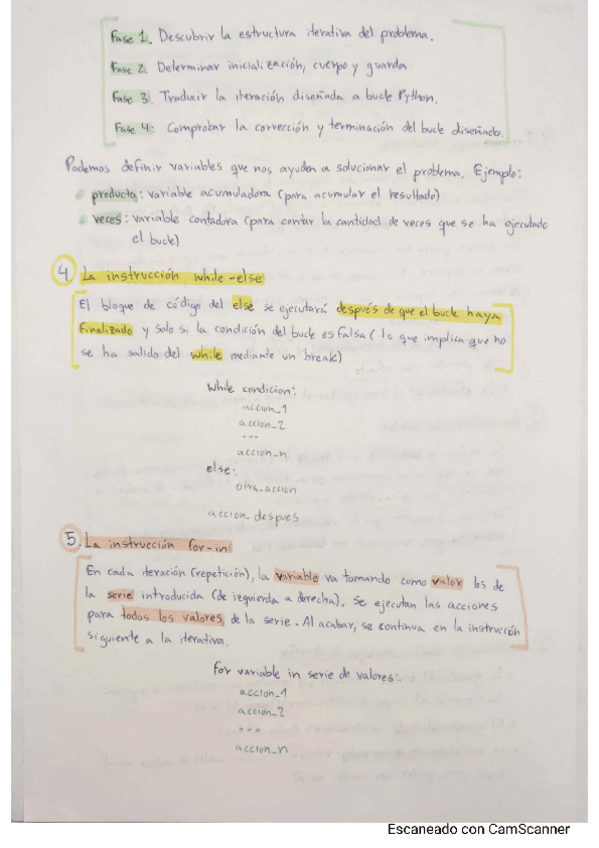 Fase 1. Descubrir la estructura iterativa del problema.
Fase 2. Determinar inicialización, cuerpo y guarda
Fase 3. Traducir la iteración diseñada a bucle Python.
Fase 4: Comprobar la corrección y terminación del bucle diseñado.
Podemos definir variables que nos ayuden a solucionar el problema. Ejemplo:
producto: variable acumuladora (para acumular el resultado)
veces: variable contadora (para contar la cantidad de veces que se ha ejecutado
el bucle)
4 La instrucción while-else
El bloque de código del else se ejecutará después de que el bucle haya
finalizado y solo si la condición del bucle es falsa (lo que implica que no
se ha salido del while mediante un break)
while condicion:
accion_1
accion_2
...
accion_n
else:
otra_accion
accion_despues
5. La instrucción for-in
En cada iteración (repetición), la variable va tomando como valor los de
la serie introducida (de izquierda a derecha). Se ejecutan las acciones
para todos los valores de la serie. Al acabar, se continua en la instrucción
siguiente a la iterativa.
for variable in serie de valores:
accion_1
accion_2
...
accion_n
Escaneado con CamScanner